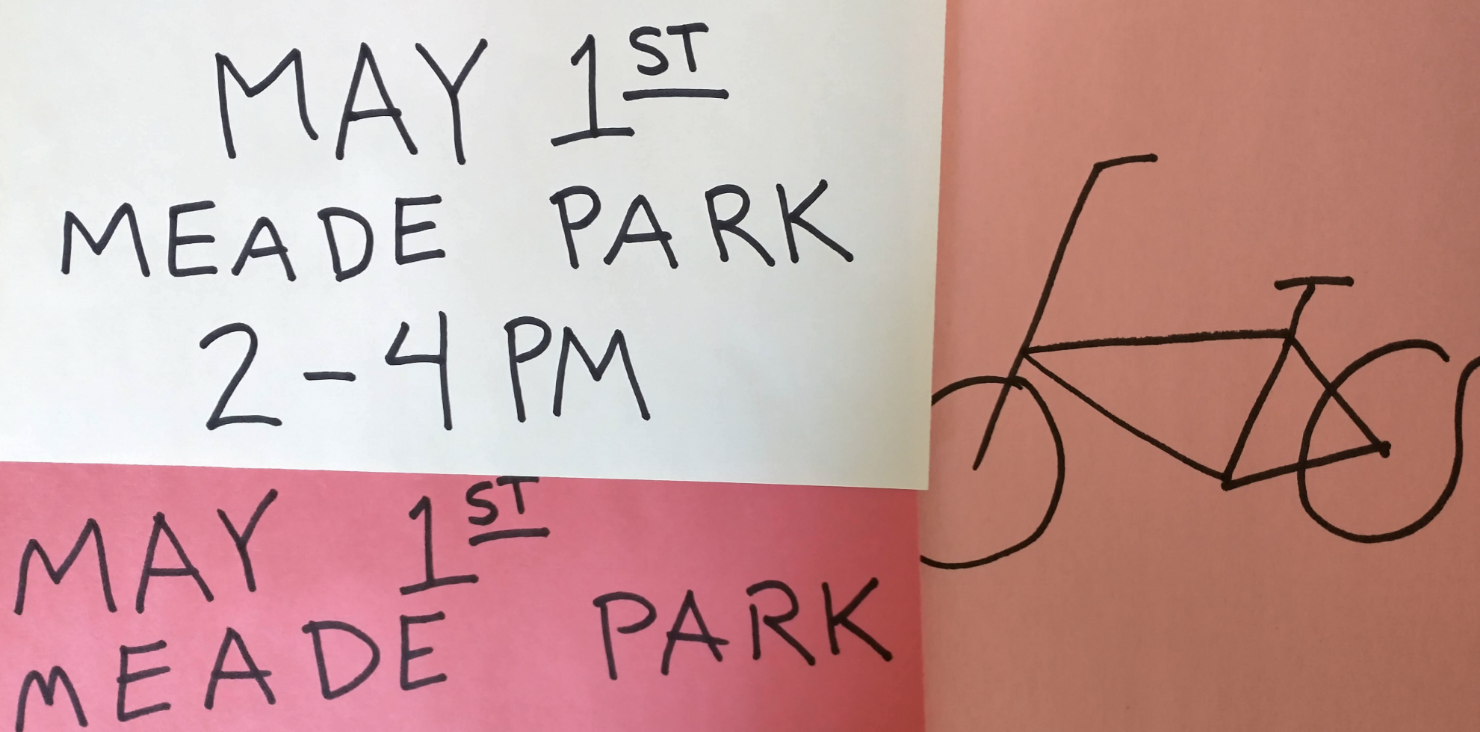 MAY 1ST
MEADE PARK
2-4 PM
MAY 1ST
MEADE PARK